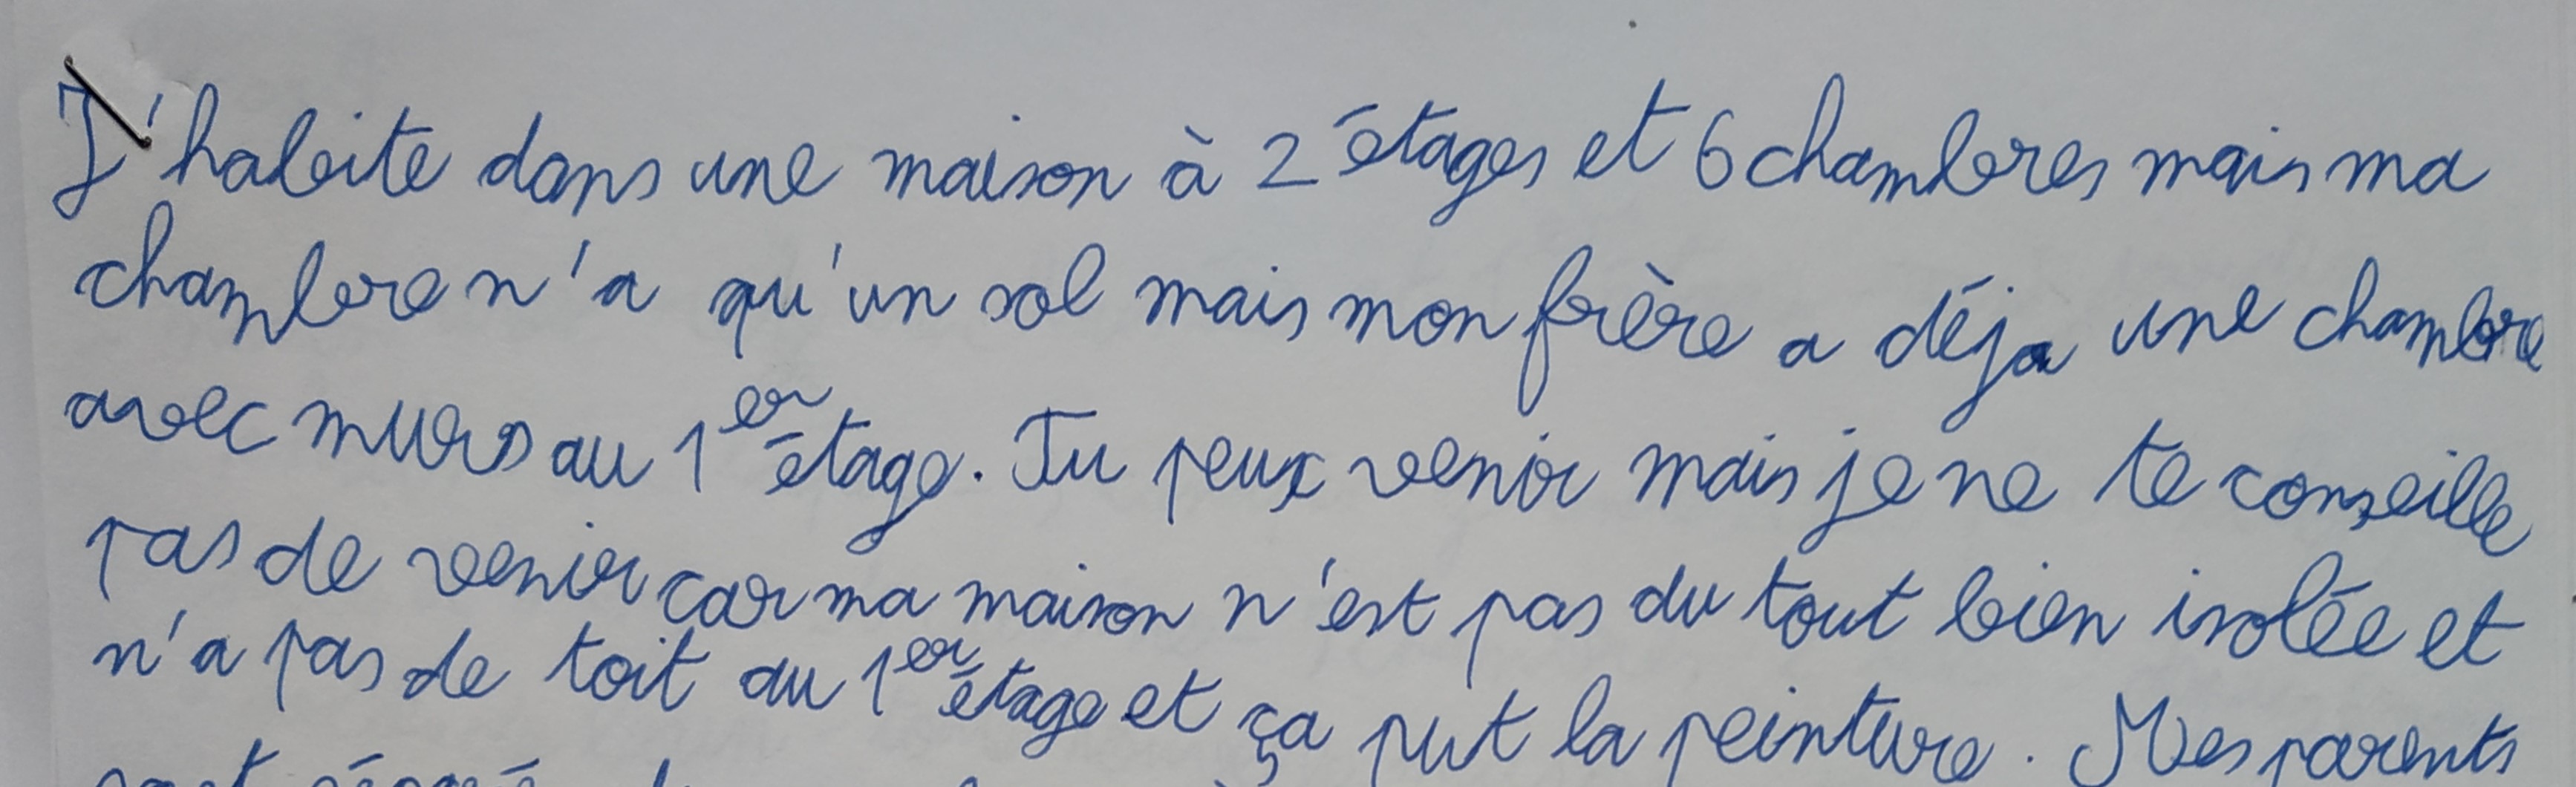 J'habite dans une maison à 2 étages et 6 chambres mais ma
chambre n'a qu'un sol mais mon frère a déja une chambre
avec murs au 1er étage. Tu peux venir mais je ne te conseille
pas de venir car ma maison n'est pas du tout bien isolée et
n'a pas de toit au 1er étage et ça put la peinture. Mes parents